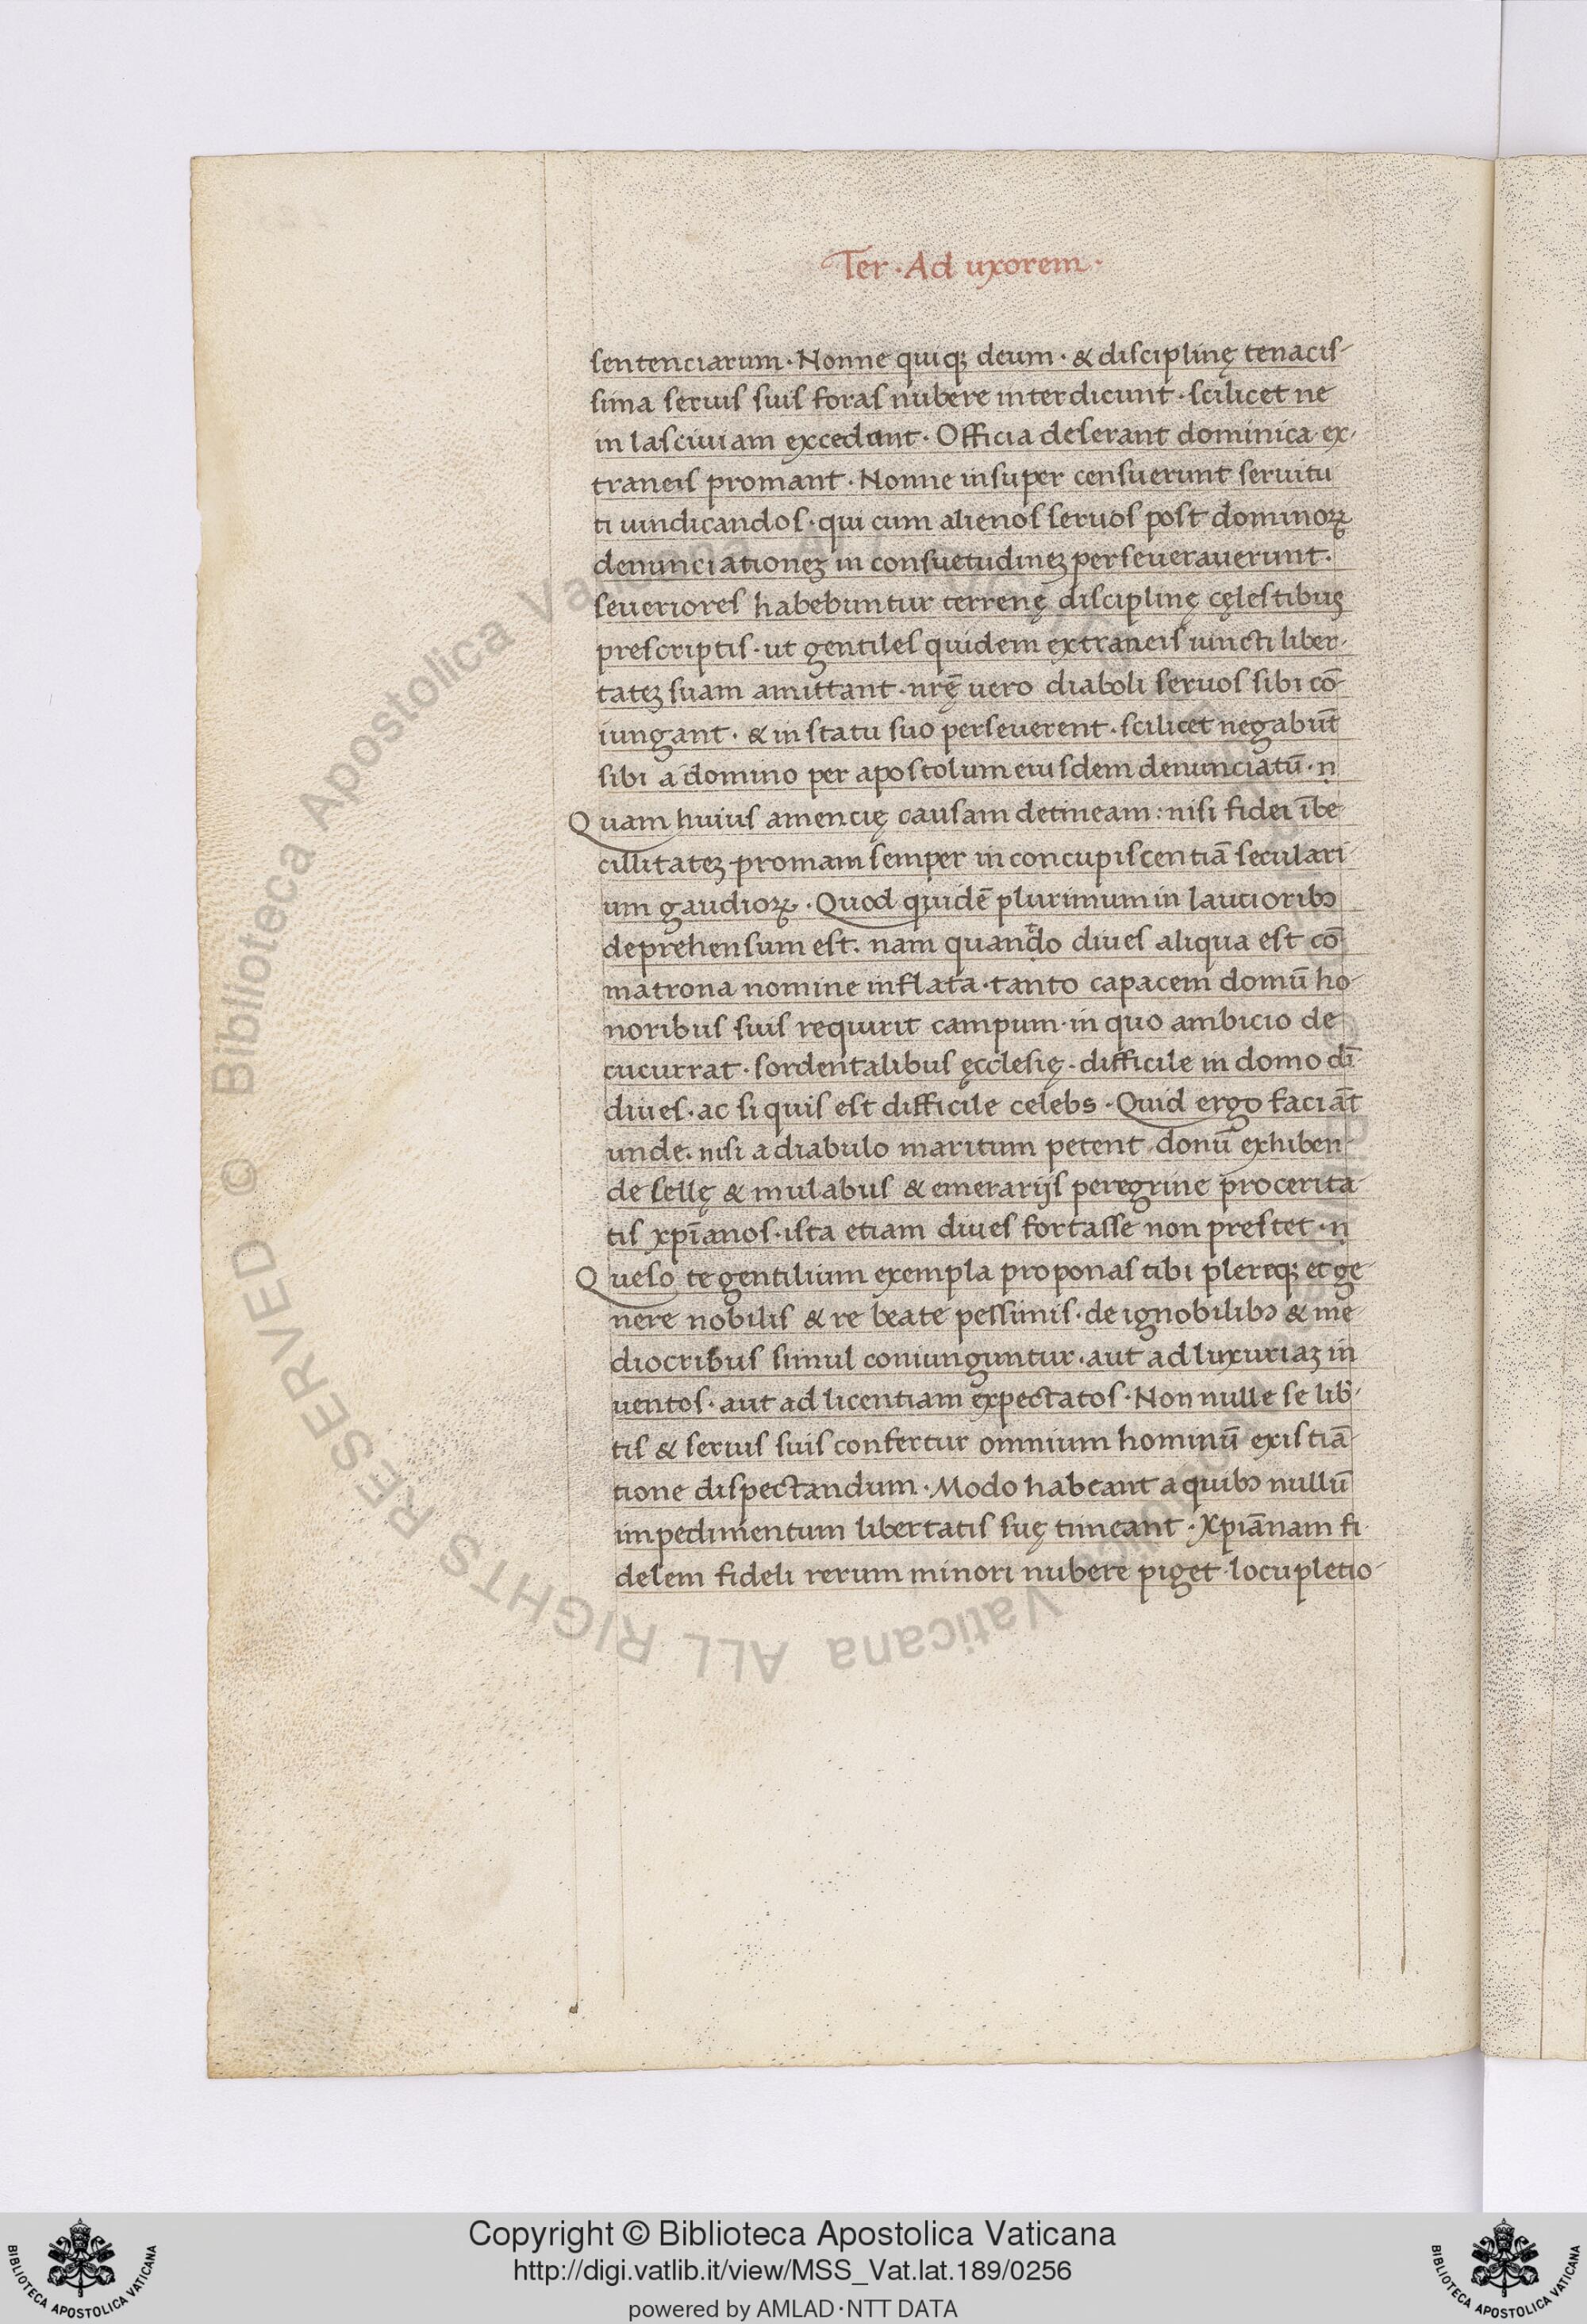 Ter · Ad uxorem ·
sentenciarum · Nonne quiqꝫ deum · & disciplinę tenacis-
sima seruis suis foras nubere interdicunt · scilicet ne
in lasciuiam excedant · Officia deserant dominica ex-
traneis promant · Nonne insuper censuerunt seruitu
ti uindicandos · qui cum alienos seruos post dominoꝝ
denunciationeꝫ in consuetudineꝫ perseuerauerunt ·
seueriores habebuntur terrenę disciplinę cęlestibus
prescriptis · ut gentiles quidem extraneis iuncti liber-
tateꝫ suam amittant · nr̄ę uero diaboli seruos sibi cō-
iungant · & in statu suo perseuerent · scilicet negabūt
sibi a domino per apostolum eiusdem denunciatū · n
Quam huius amencię causam detineam : nisi fidei ībe
cillitateꝫ promam semper in concupiscentiā seculari
um gaudioꝝ · Quod quidē plurimum in lautioribꝰ
deprehensum est · nam quando diues aliqua est cō
matrona nomine inflata · tanto capacem domū ho
noribus suis requirit campum · in quo ambicio de
cucurrat · sordent alibus ęcclesię · difficile in domo dī
diues · ac si quis est difficile celebs · Quid ergo faciāt
unde · nisi a diabulo maritum petent · donū exhiben
de sellę & mulabus & emerarijs peregrine procerita
tis xp̄ianos · ista etiam diues fortasse non prestet · n
Queso te gentilium exempla proponas tibi plereqꝫ et ge
nere nobilis & re beate pessimis · de ignobilibꝰ & me
diocribus simul coniunguntur · aut ad luxuriaꝫ in
uentos · aut ad licentiam expectatos · Non nulle se lib̄-
tis & seruis suis confertur omnium hominū existiā-
tione dispectandum · Modo habeant a quibꝰ nullū
impedimentum libertatis suę timeant · Xp̄iānam fi
delem fideli rerum minori nubere piget · locupletio-
Biblioteca Apostolica Vaticana ALL RIGHTS RESERVED ©
Copyright © Biblioteca Apostolica Vaticana
http://digi.vatlib.it/view/MSS_Vat.lat.189/0256
powered by AMLAD·NTT DATA
BIBLIOTECA APOSTOLICA VATICANA
BIBLIOTECA APOSTOLICA VATICANA